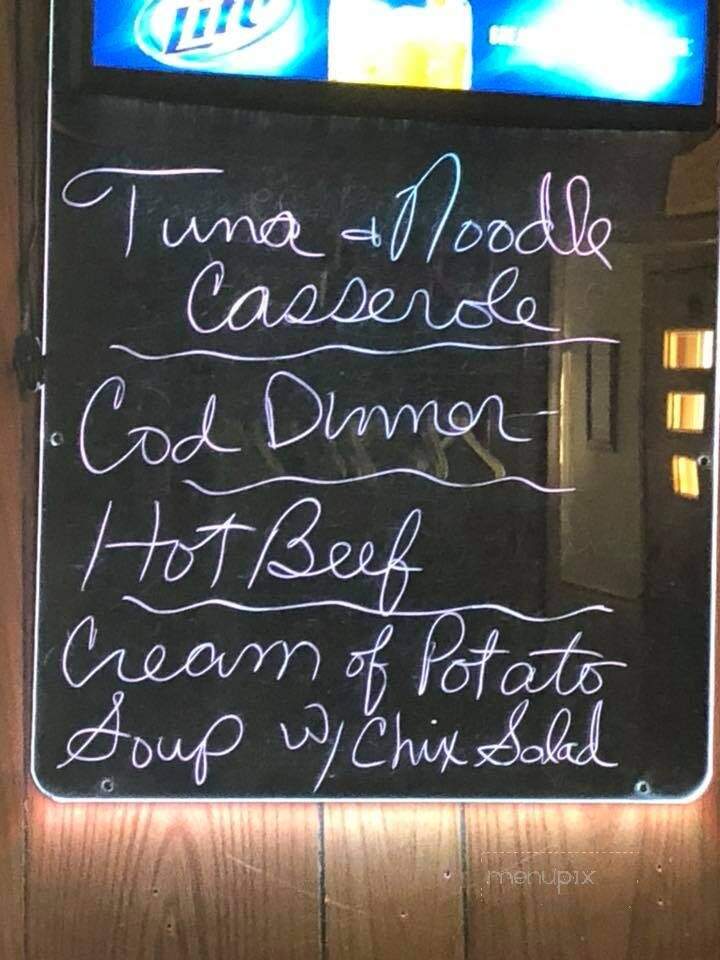 Lite
Tuna & Noodle
Casserole
Cod Dinner
Hot Beef
Cream of Potato
Soup w/ Chix Salad
menupix